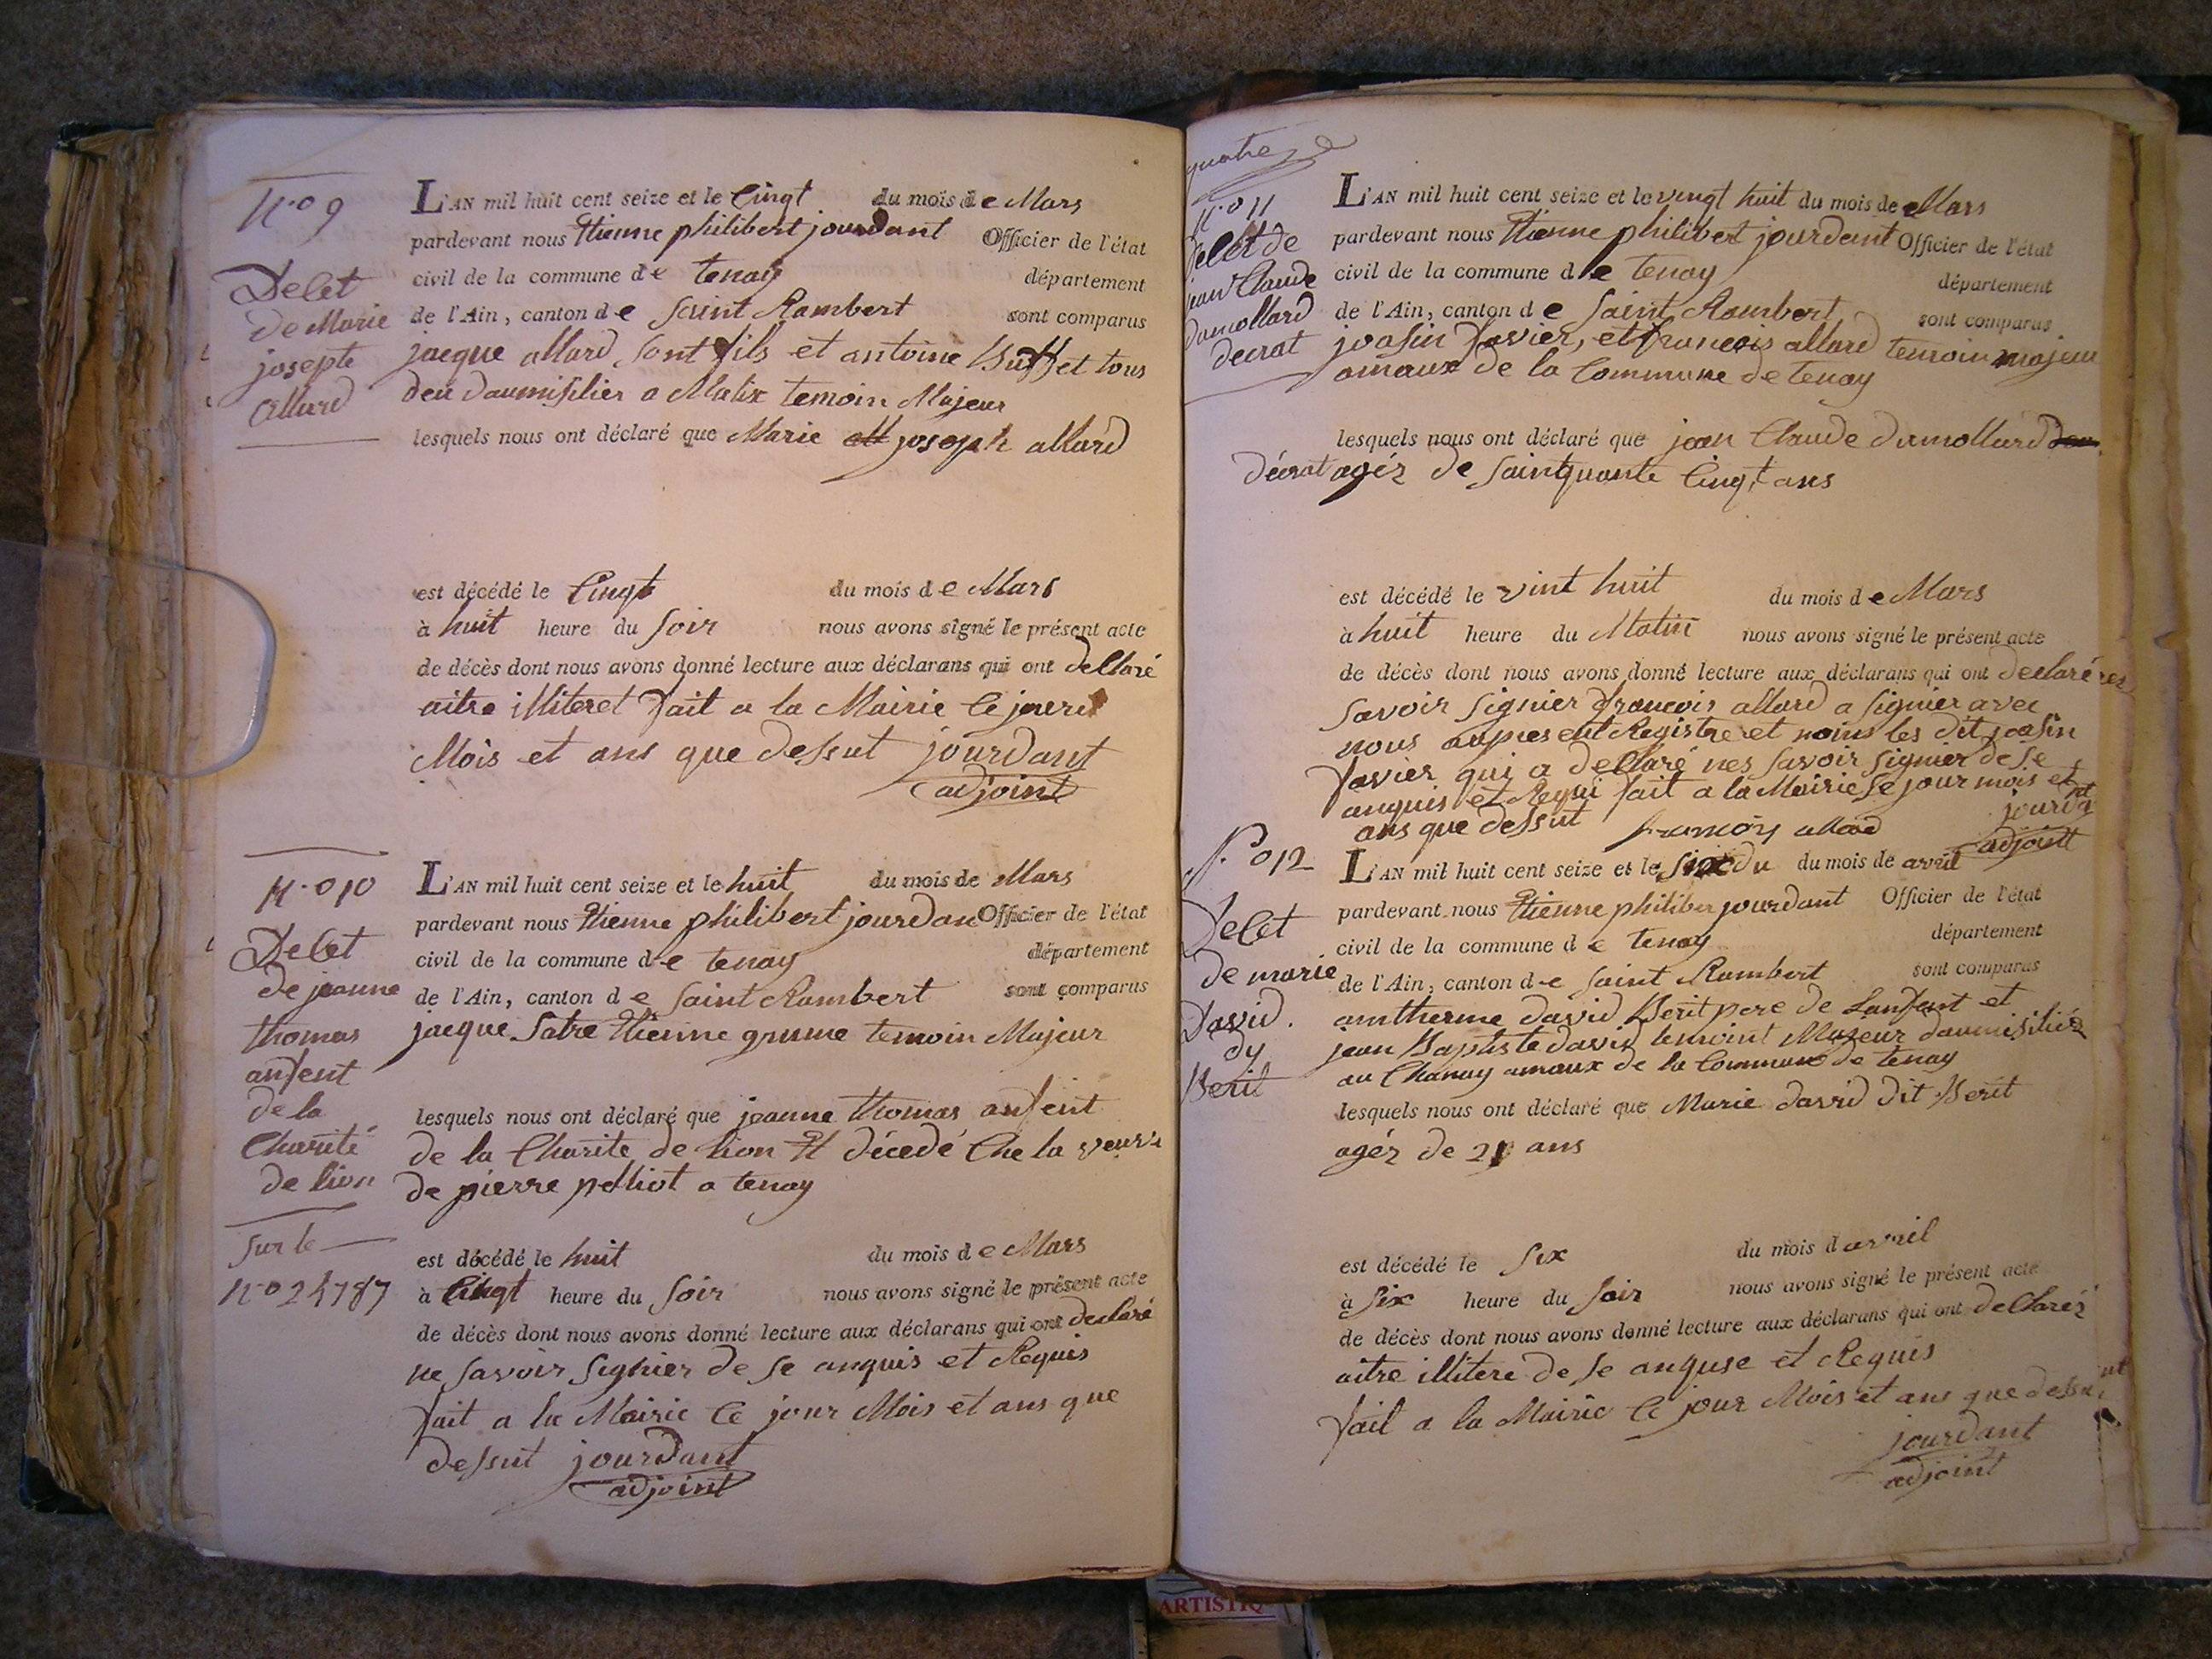 N.o 9
Decet
de Marie
josepte
Allard
L'AN mil huit cent seize et le Cinqt du mois de Mars
pardevant nous Etienne philibert jourdant Officier de l'état
civil de la commune de tenay département
de l'Ain, canton de Saint Rambert sont comparus
jacque allard sont fils et antoine Buffet tous
deu daumisilier a Malix temoin Majeur
lesquels nous ont déclaré que Marie all joseph allard
est décédé le Cinqt du mois de Mars
à huit heure du soir nous avons signé le présent acte
de décès dont nous avons donné lecture aux déclarans qui ont declaré
aitre illiteret fait a la Mairie le jour
Mois et ans que dessut jourdant
adjoint
N.o 010
Decet
de jeanne
thomas
anfent
de la
Charité
de lion
sur le
N.o 24787
L'AN mil huit cent seize et le huit du mois de Mars
pardevant nous Etienne philibert jourdan Officier de l'état
civil de la commune de tenay département
de l'Ain, canton de Saint Rambert sont comparus
jacque Satre Etienne grume temoin Majeur
lesquels nous ont déclaré que jeanne thomas anfent
de la Charite de lion Et décedé Che la veuve
de pierre pelliot a tenay
est décédé le huit du mois de Mars
à Cinqt heure du soir nous avons signé le présent acte
de décès dont nous avons donné lecture aux déclarans qui ont declaré
ne savoir signier de se anquis et Requis
fait a la Mairie le jour Mois et ans que
dessut jourdant
adjoint
quatre
N.o 11
Decet de
jean Claude
dumollard
decrat
L'AN mil huit cent seize et le vingt huit du mois de Mars
pardevant nous Etienne philibert jourdant Officier de l'état
civil de la commune de tenay département
de l'Ain, canton de Saint Rambert sont comparus
joasin favier, et francois allard temoin majeur
amaux de la Commune de tenay
lesquels nous ont déclaré que jean Claude dumollard
décrat agéz de sainquante Cinqt ans
est décédé le vint huit du mois de Mars
à huit heure du Matin nous avons signé le présent acte
de décès dont nous avons donné lecture aux déclarans qui ont declaré nes
savoir signier francois allard a signier avec
nous aupresent Registre et noins les dit joasin
favier qui a declaré nes savoir signier de se
anquis et Requi fait a la Mairie se jour mois et
ans que dessut francois allard jourdant
adjoint
N.o 012
Decet
de marie
David
dy
Berit
L'AN mil huit cent seize et le six du mois de avril
pardevant nous Etienne philiber jourdant Officier de l'état
civil de la commune de tenay département
de l'Ain, canton de Saint Rambert sont comparus
amtherme david Berit pere de Lanfent et
jean Baptiste david temoint Mazeur daumisiliéz
au Chanay amaux de la Commune de tenay
lesquels nous ont déclaré que Marie david dit Berit
agéz de 21 ans
est décédé le six du mois d avril
à six heure du soir nous avons signé le présent acte
de décès dont nous avons donné lecture aux déclarans qui ont declaréz
aitre illitere de se anquse et Requis
fait a la Mairie le jour Mois et ans que dessut
jourdant
adjoint
ARTISTIQ